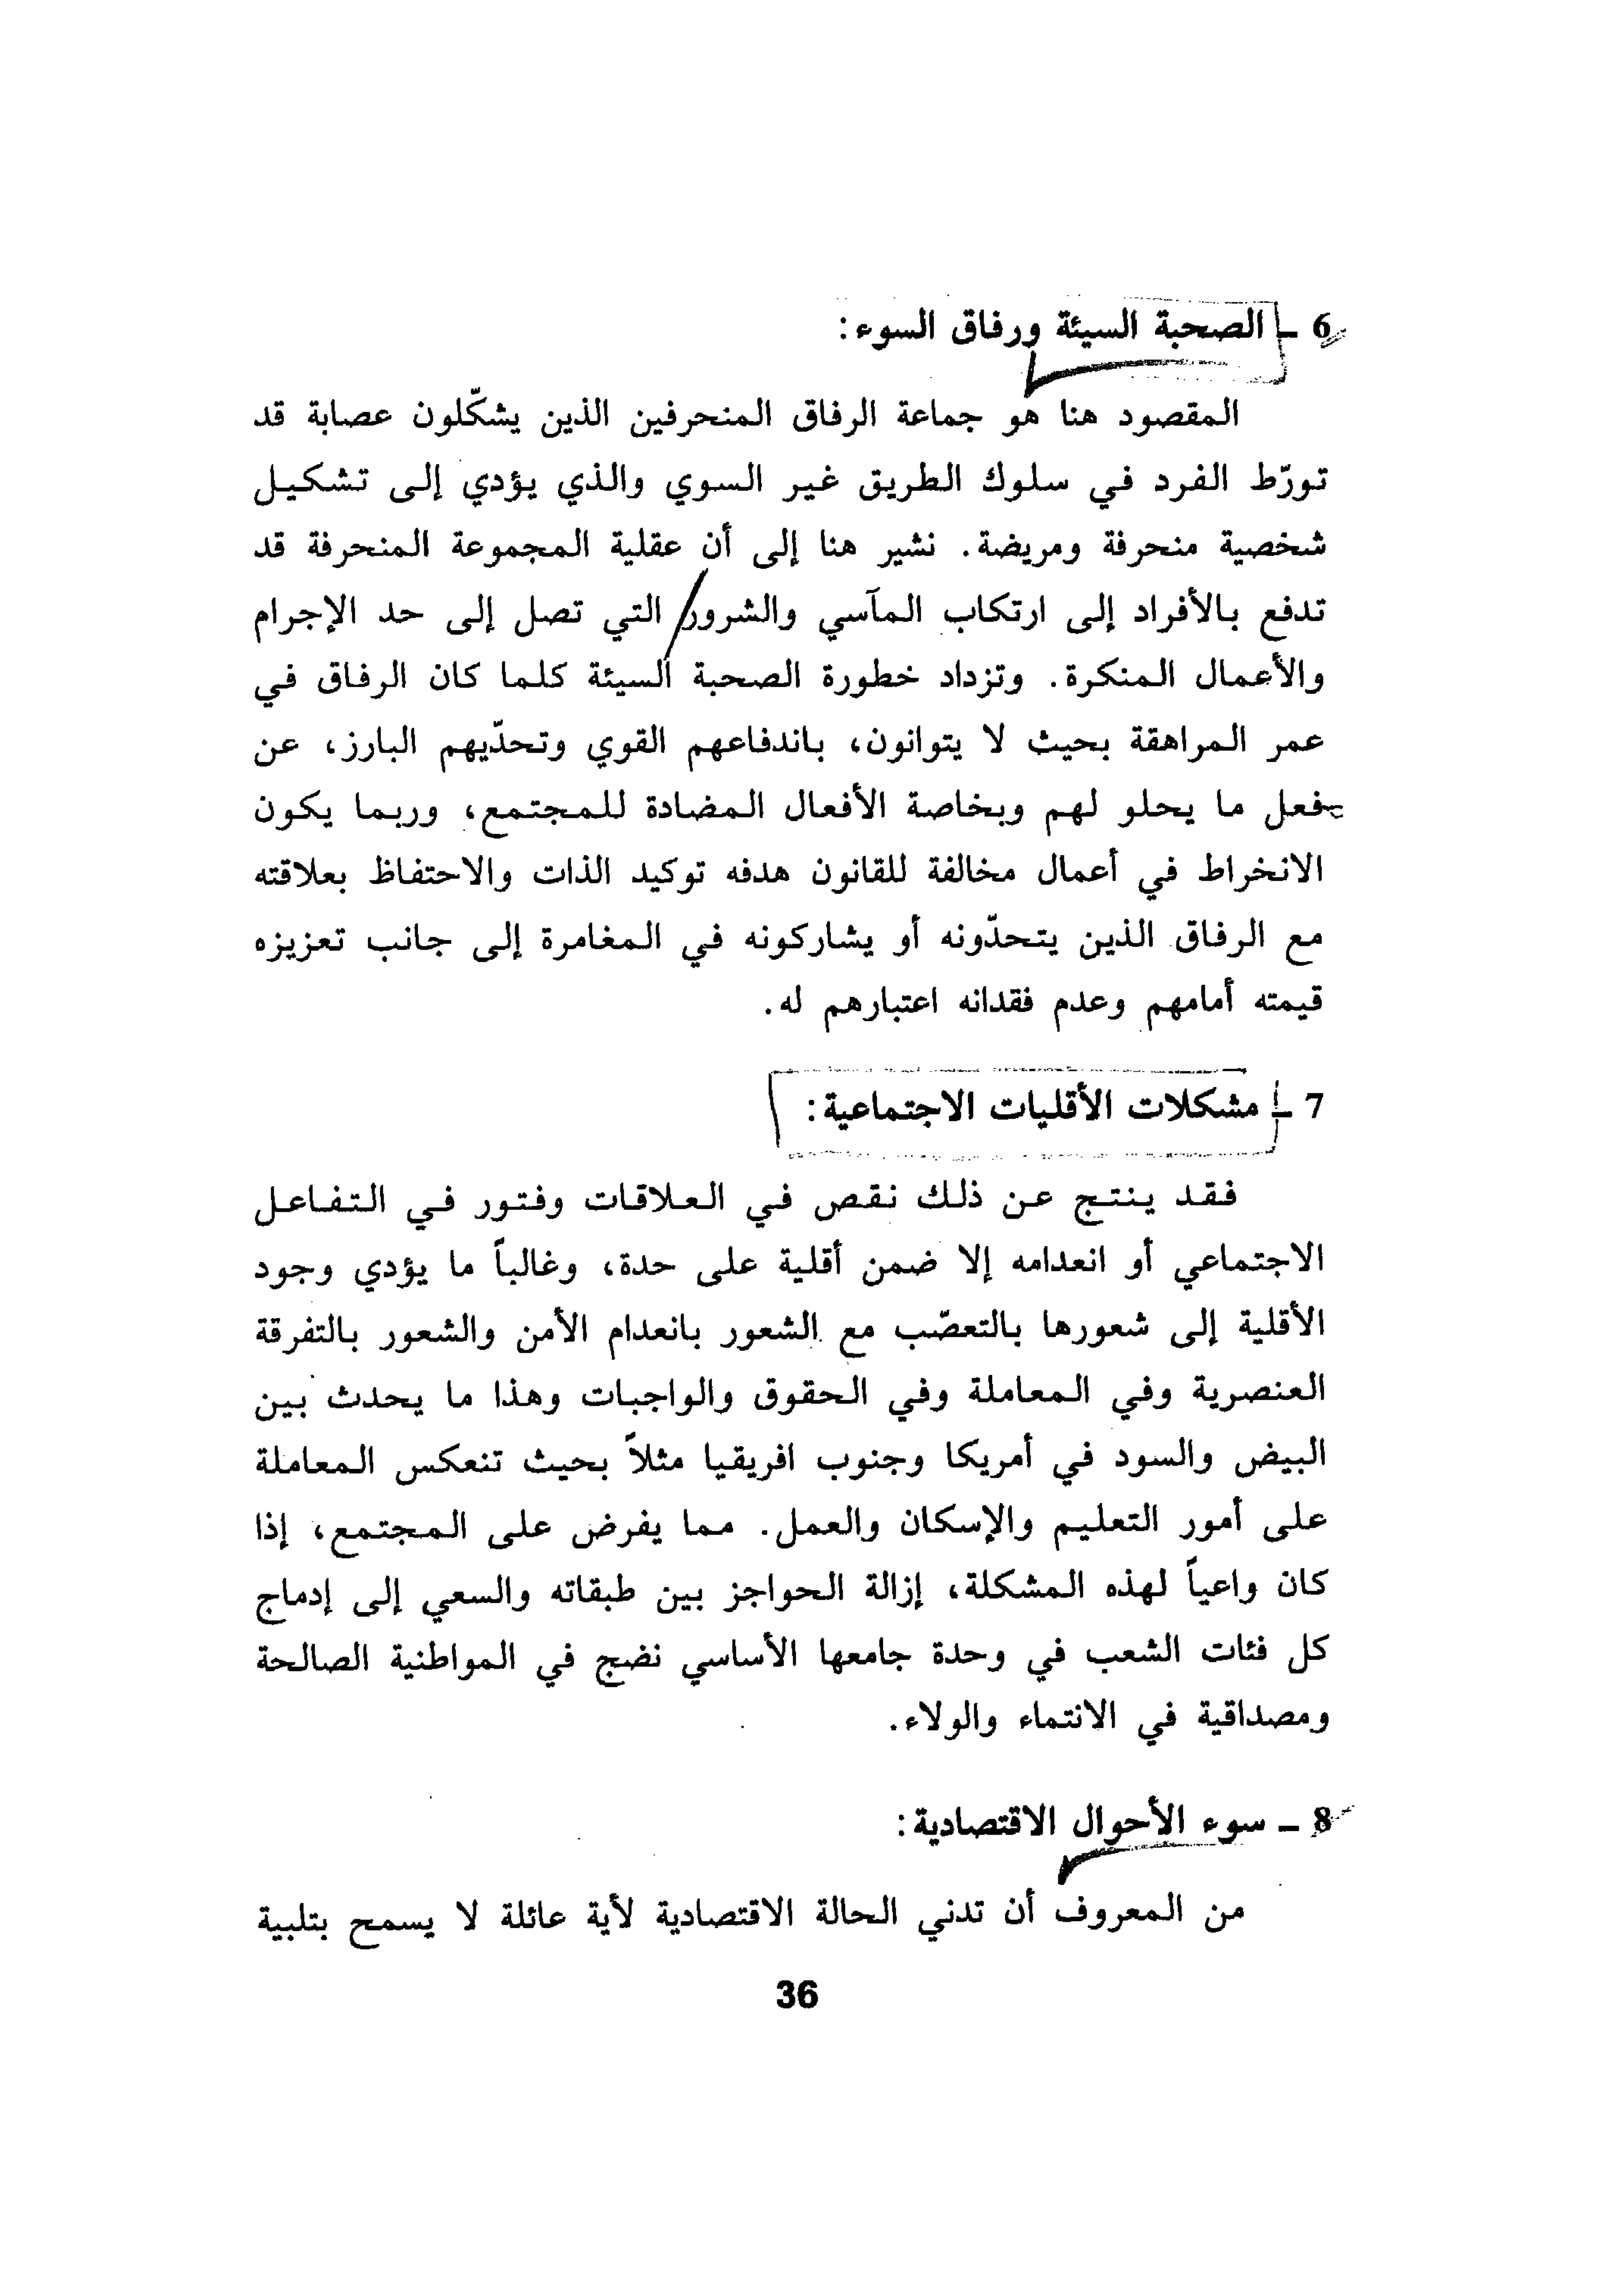 6 ـ الصحبة السيئة ورفاق السوء:
المقصود هنا هو جماعة الرفاق المنحرفين الذين يشكّلون عصابة قد
تورّط الفرد في سلوك الطريق غير السوي والذي يؤدي إلى تشكيل
شخصية منحرفة ومريضة. نشير هنا إلى أن عقلية المجموعة المنحرفة قد
تدفع بالأفراد إلى ارتكاب المآسي والشرور التي تصل إلى حد الإجرام
والأعمال المنكرة. وتزداد خطورة الصحبة السيئة كلما كان الرفاق في
عمر المراهقة بحيث لا يتوانون، باندفاعهم القوي وتحدّيهم البارز، عن
فعل ما يحلو لهم وبخاصة الأفعال المضادة للمجتمع، وربما يكون
الانخراط في أعمال مخالفة للقانون هدفه توكيد الذات والاحتفاظ بعلاقته
مع الرفاق الذين يتحدّونه أو يشاركونه في المغامرة إلى جانب تعزيزه
قيمته أمامهم وعدم فقدانه اعتبارهم له.
7 ـ مشكلات الأقليات الاجتماعية:
فقد ينتج عن ذلك نقص في العلاقات وفتور في التفاعل
الاجتماعي أو انعدامه إلا ضمن أقلية على حدة، وغالباً ما يؤدي وجود
الأقلية إلى شعورها بالتعصّب مع الشعور بانعدام الأمن والشعور بالتفرقة
العنصرية وفي المعاملة وفي الحقوق والواجبات وهذا ما يحدث بين
البيض والسود في أمريكا وجنوب افريقيا مثلاً بحيث تنعكس المعاملة
على أمور التعليم والإسكان والعمل. مما يفرض على المجتمع، إذا
كان واعياً لهذه المشكلة، إزالة الحواجز بين طبقاته والسعي إلى إدماج
كل فئات الشعب في وحدة جامعها الأساسي نضج في المواطنية الصالحة
ومصداقية في الانتماء والولاء.
8 ـ سوء الأحوال الاقتصادية:
من المعروف أن تدني الحالة الاقتصادية لأية عائلة لا يسمح بتلبية
36